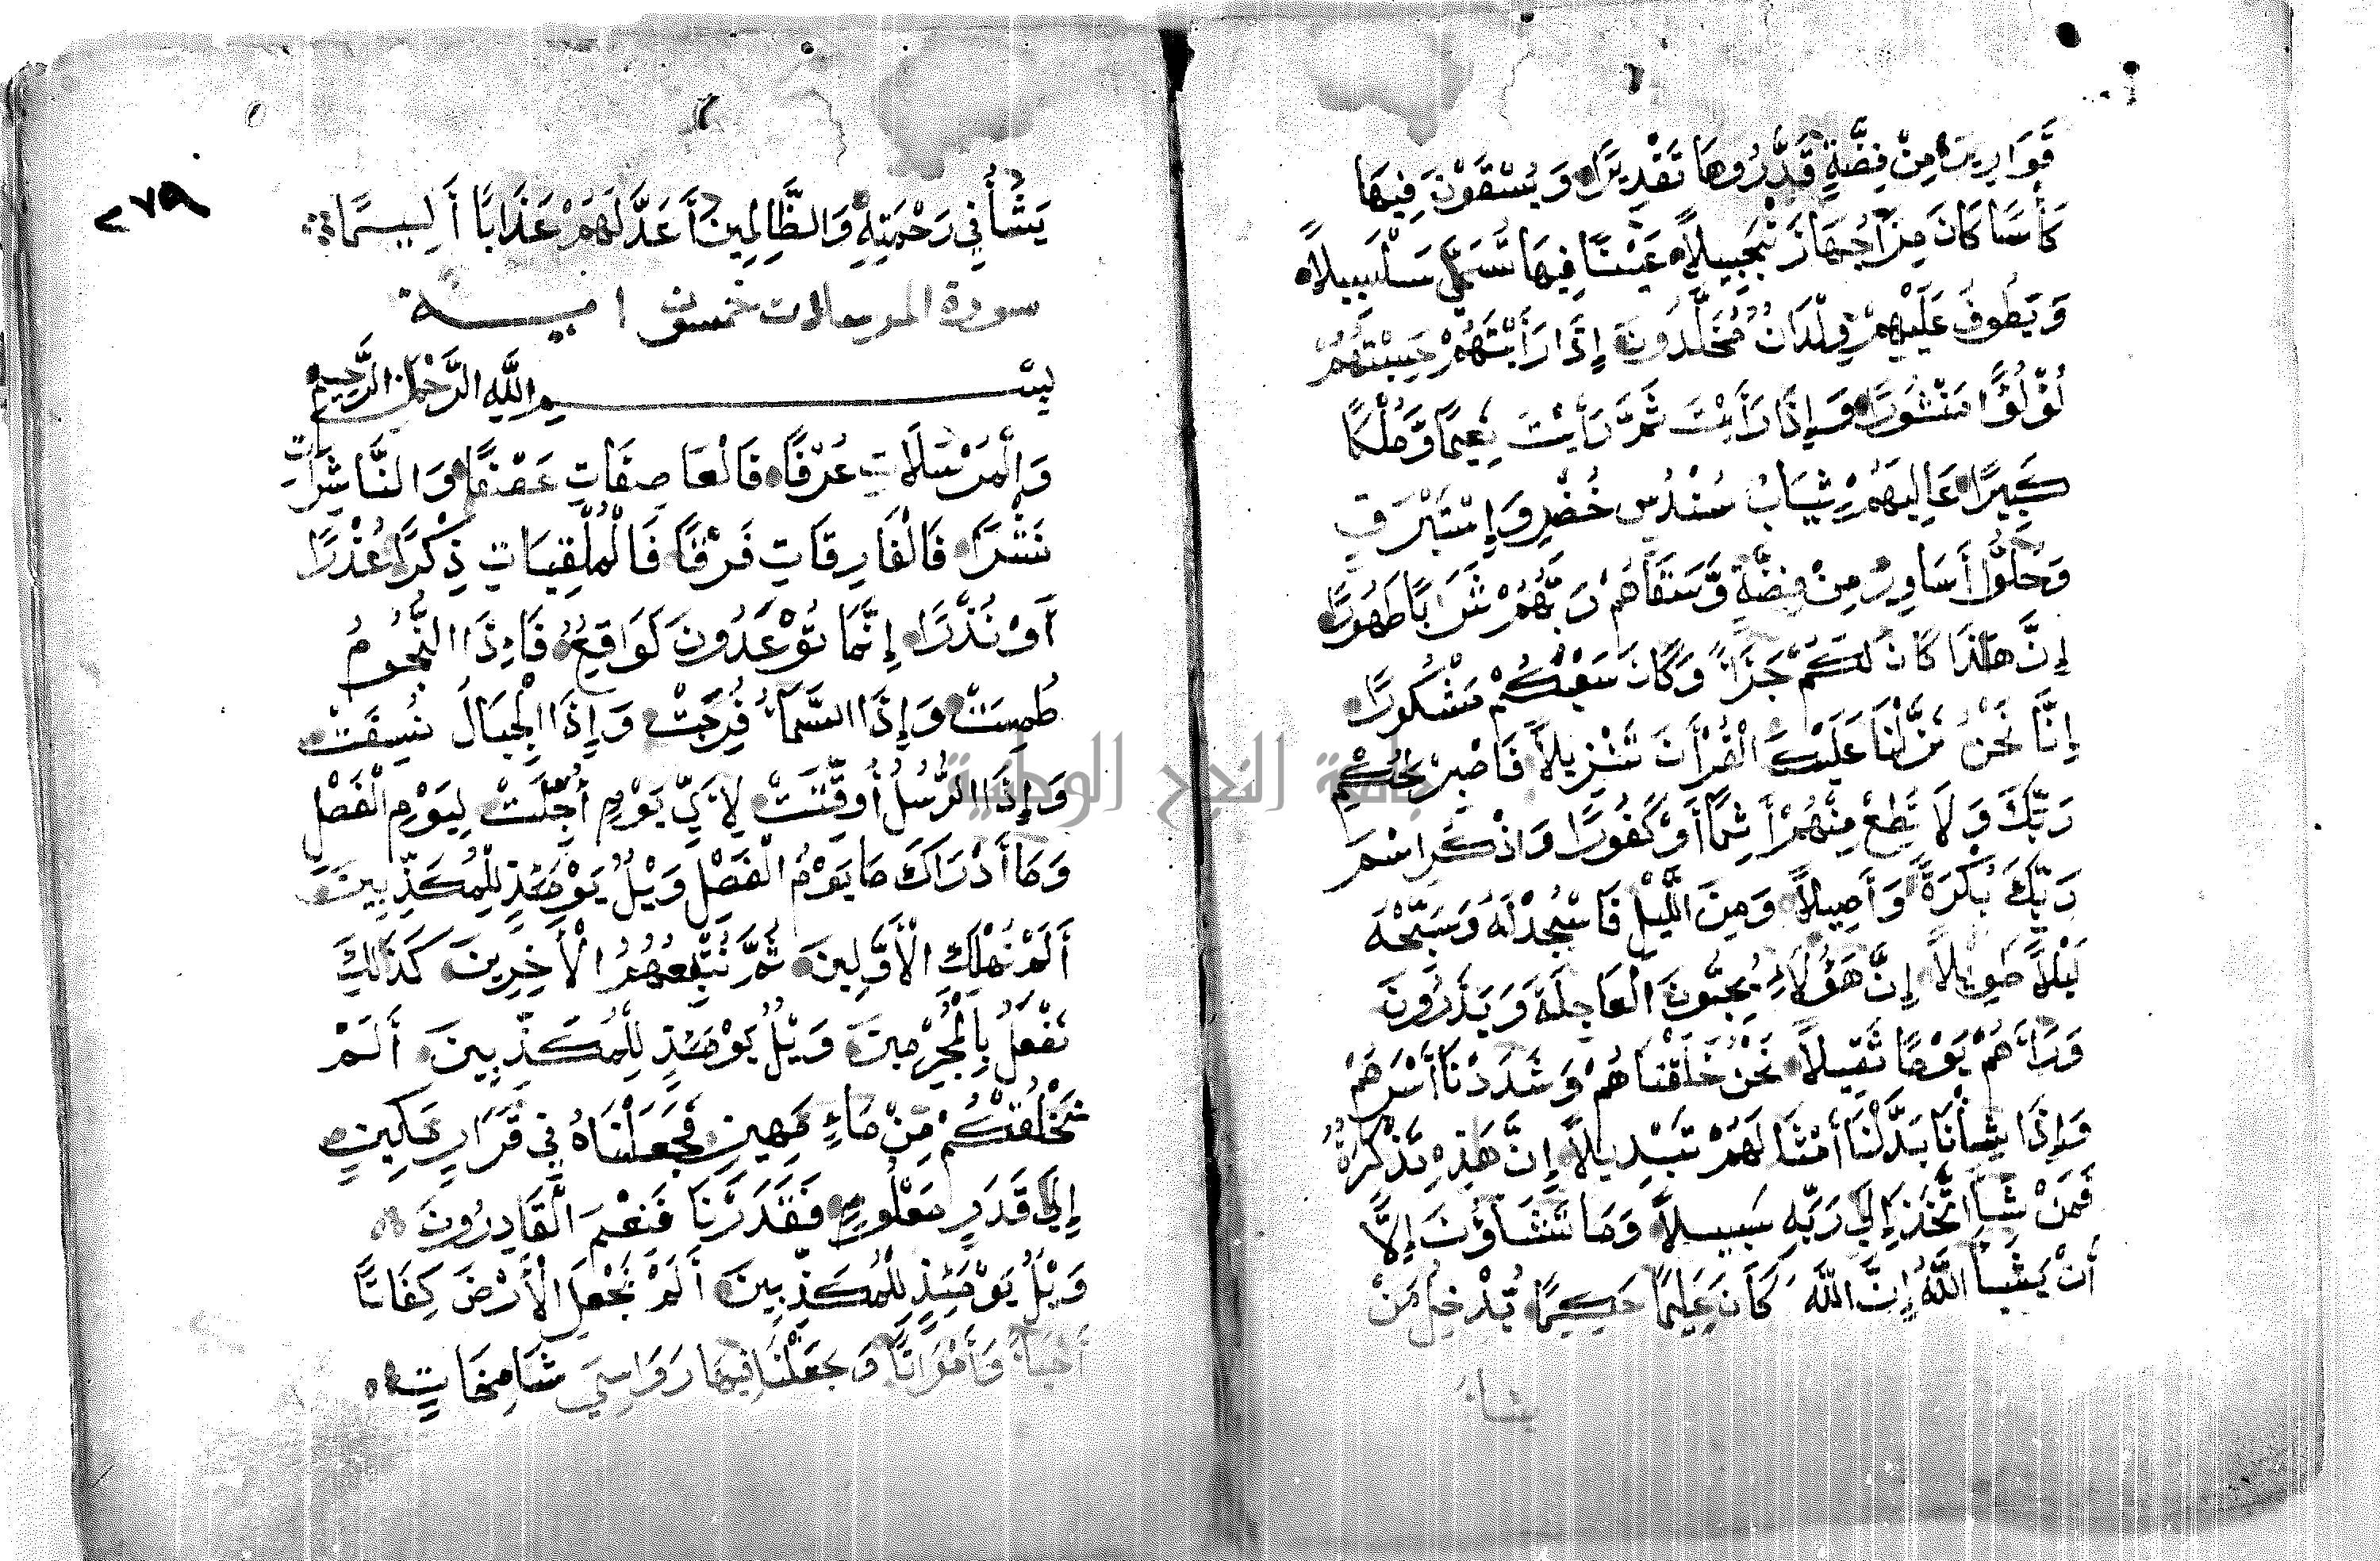 قَوَارِيرَا مِنْ فِضَّةٍ قَدَّرُوهَا تَقْدِيرًا وَيُسْقَوْنَ فِيهَا
كَأْسًا كَانَ مِزَاجُهَا زَنْجَبِيلاً عَيْنًا فِيهَا تُسَمَّى سَلْسَبِيلاً
وَيَطُوفُ عَلَيْهِمْ وِلْدَانٌ مُخَلَّدُونَ إِذَا رَأَيْتَهُمْ حَسِبْتَهُمْ
لُؤْلُؤًا مَنْثُورًا وَإِذَا رَأَيْتَ ثَمَّ رَأَيْتَ نَعِيمًا وَمُلْكًا
كَبِيرًا عَالِيَهُمْ ثِيَابُ سُنْدُسٍ خُضْرٍ وَإِسْتَبْرَقٍ
وَحُلُّوا أَسَاوِرَ مِنْ فِضَّةٍ وَسَقَاهُمْ رَبُّهُمْ شَرَابًا طَهُورًا
إِنَّ هَذَا كَانَ لَكُمْ جَزَاً وَكَانَ سَعْيُكُمْ مَشْكُورًا
إِنَّا نَحْنُ نَزَّلْنَا عَلَيْكَ الْقُرْأَنَ تَنْزِيلاً فَاصْبِرْ لِحُكْمِ
رَبِّكَ وَلَا تُطِعْ مِنْهُمْ أَثِمًا أَوْ كَفُورًا وَاذْكُرِ اسْمَ
رَبِّكَ بُكْرَةً وَأَصِيلاً وَمِنَ اللَّيْلِ فَاسْجُدْ لَهُ وَسَبِّحْهُ
لَيْلاً طَوِيلاً إِنَّ هَؤُلَاءِ يُحِبُّونَ الْعَاجِلَةَ وَيَذَرُونَ
وَرَاَهُمْ يَوْمًا ثَقِيلاً نَحْنُ خَلَقْنَاهُمْ وَشَدَدْنَا أَسْرَهُمْ
وَإِذَا شِئْنَا بَدَّلْنَا أَمْثَالَهُمْ تَبْدِيلاً إِنَّ هَذِهِ تَذْكِرَةٌ
فَمَنْ شَاَ اتَّخَذَ إِلَى رَبِّهِ سَبِيلاً وَمَا تَشَاؤُنَ إِلَّا
أَنْ يَشَاَ اللَّهُ إِنَّ اللَّهَ كَانَ عَلِيمًا حَكِيمًا يُدْخِلُ مَنْ
يشاُ
٢٧٩
يَشَأُ فِي رَحْمَتِهِ وَالظَّالِمِينَ أَعَدَّ لَهُمْ عَذَابًا أَلِيمًا
سورة المرسلات خمسون اية
بِسْمِ اللَّهِ الرَّحْمَنِ الرَّحِيمِ
وَالْمُرْسَلَاتِ عُرْفًا فَالْعَاصِفَاتِ عَصْفًا وَالنَّاشِرَاتِ
نَشْرًا فَالْفَارِقَاتِ فَرْقًا فَالْمُلْقِيَاتِ ذِكْرًا عُذْرًا
أَوْ نُذْرًا إِنَّمَا تُوْعَدُونَ لَوَاقِعٌ فَإِذَا النُّجُومُ
طُمِسَتْ وَإِذَا السَّمَاُ فُرِجَتْ وَإِذَا الْجِبَالُ نُسِفَتْ
وَإِذَا الرُّسُلُ أُوقِّتَتْ لِأَيِّ يَوْمٍ أُجِّلَتْ لِيَوْمِ الْفَصْلِ
وَمَا أَدْرَاكَ مَا يَوْمُ الْفَصْلِ وَيْلٌ يَوْمَئِذٍ لِلْمُكَذِّبِينَ
أَلَمْ نُهْلِكِ الْأَوَّلِينَ ثُمَّ نُتْبِعُهُمُ الْأَخِرِينَ كَذَلِكَ
نَفْعَلُ بِالْمُجْرِمِينَ وَيْلٌ يَوْمَئِذٍ لِلْمُكَذِّبِينَ أَلَمْ
نَخْلُقْكُمْ مِنْ مَاءٍ مَهِينٍ فَجَعَلْنَاهُ فِي قَرَارٍ مَكِينٍ
إِلَى قَدَرٍ مَعْلُومٍ فَقَدَرْنَا فَنِعْمَ الْقَادِرُونَ
وَيْلٌ يَوْمَئِذٍ لِلْمُكَذِّبِينَ أَلَمْ نَجْعَلِ الْأَرْضَ كِفَاتًا
أَحْيَاً وَأَمْوَاتًا وَجَعَلْنَا فِيهَا رَوَاسِيَ شَامِخَاتٍ
جامعة النجاح الوطنية